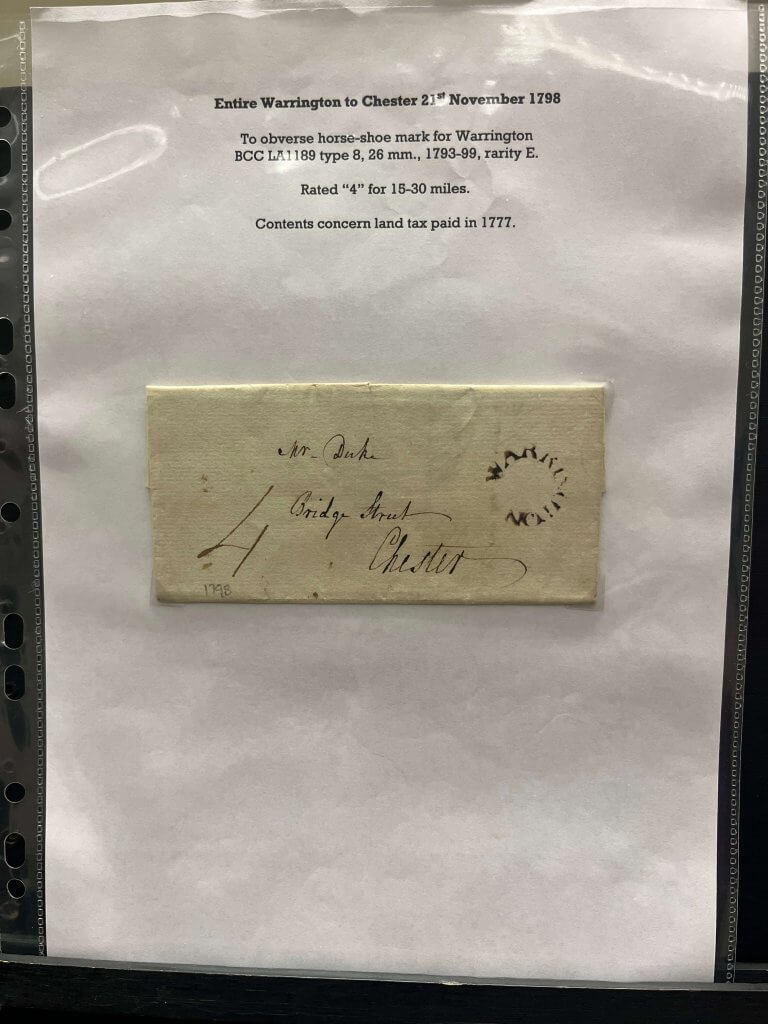 Entire Warrington to Chester 21st November 1798
To obverse horse-shoe mark for Warrington
BCC LA1189 type 8, 26 mm., 1793-99, rarity E.
Rated “4” for 15-30 miles.
Contents concern land tax paid in 1777.
Mr- Duke
WARRINGTON
Bridge Street
4
Chester
1798